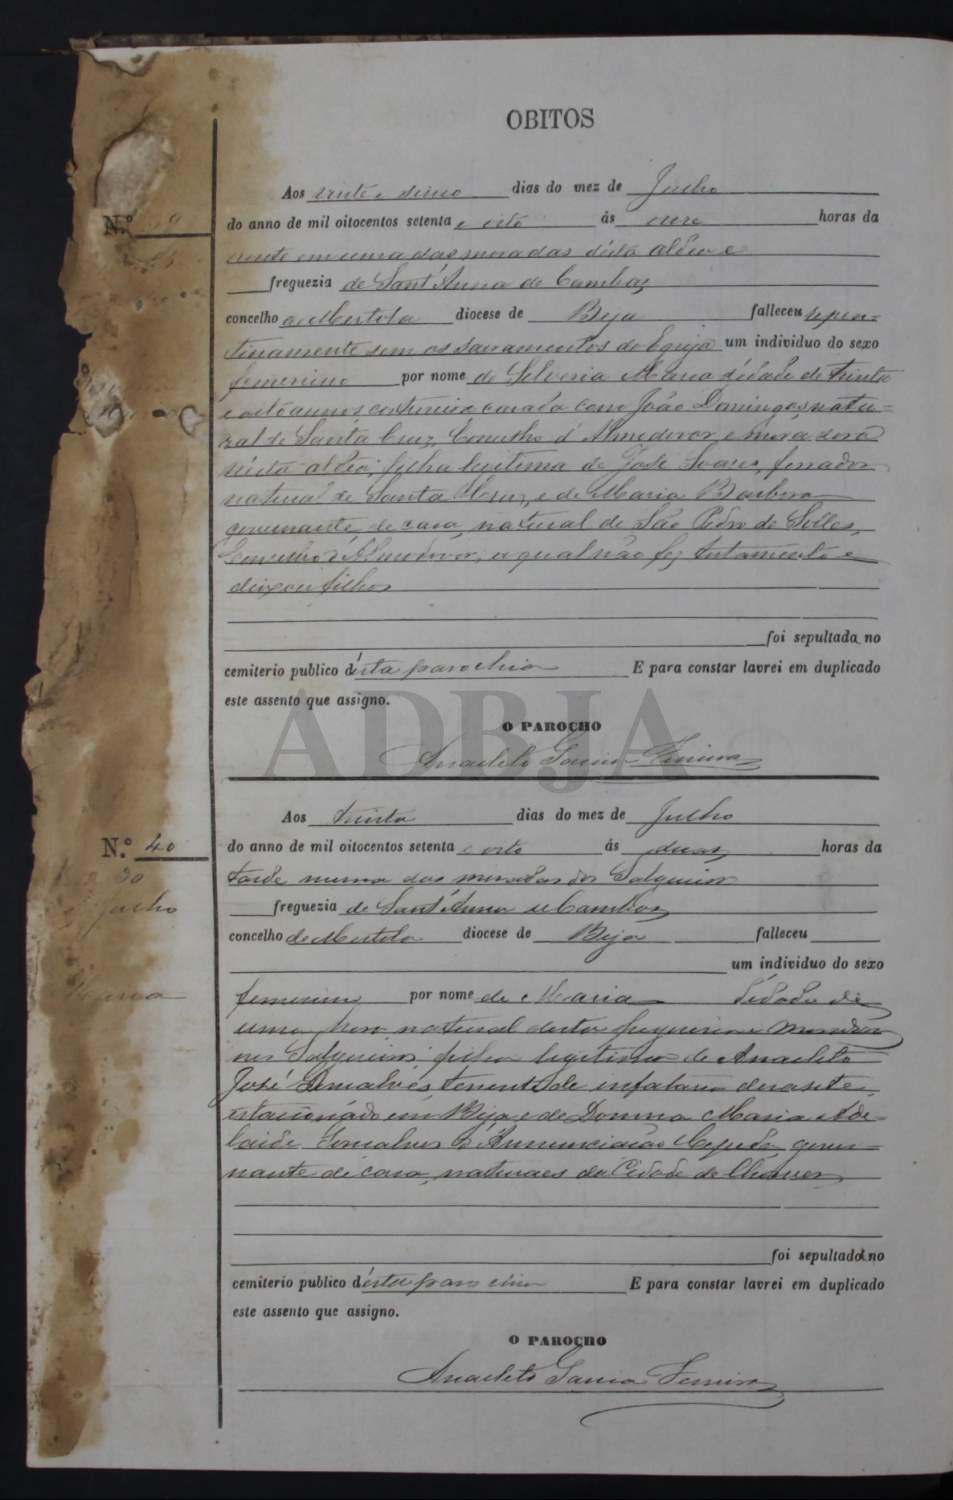 OBITOS
Aos vinte e sinco dias do mez de Julho
do anno de mil oitocentos setenta e oito ás horas da
em uma das moradas désta aldeia e
freguezia de Sant'Anna de Cambas
concelho de Mertola diocese de Beja falleceu repen-
tinamente sem os sacramentos da Egreja um individuo do sexo
femenino por nome de Silveria Maria d'idade de trinta
e oito annos costureira casada com João Domingos natu-
ral de Santa Cruz, Concelho d'Almodovar, e moradora
nésta aldeia, filha legitima de José Soares, ferrador
natural de Santa Cruz, e de Maria Barbora
governante de casa, natural de São Pedro de Solles,
Concelho d'Almodovar, a qual não fez testamento e
deixou filhos
foi sepultada no
cemiterio publico désta parochia E para constar lavrei em duplicado
este assento que assigno.
O PAROCHO
Anacleto Garcia Ferreira
ADBJA
N.º 40
30
Julho
Maria
Aos trinta dias do mez de Julho
do anno de mil oitocentos setenta e oito ás duas horas da
tarde numa das moradas dos Salgueiros
freguezia de Sant'Anna de Cambas
concelho de Mertola diocese de Beja falleceu
um individuo do sexo
femenino por nome de Maria d'idade de
uma hora natural desta freguezia e moradora
nos Salgueiros filha legitima de Anacleto
José Gonsalves tenente de infataria dezasete
estacionado em Beja, e de Donna Maria Ade-
laide Gonsalves d'Annunciacão Cepeda, gover-
nante de casa, naturaes da Cidade de Chaves
foi sepultada no
cemiterio publico désta parochia E para constar lavrei em duplicado
este assento que assigno.
O PAROCHO
Anacleto Garcia Ferreira